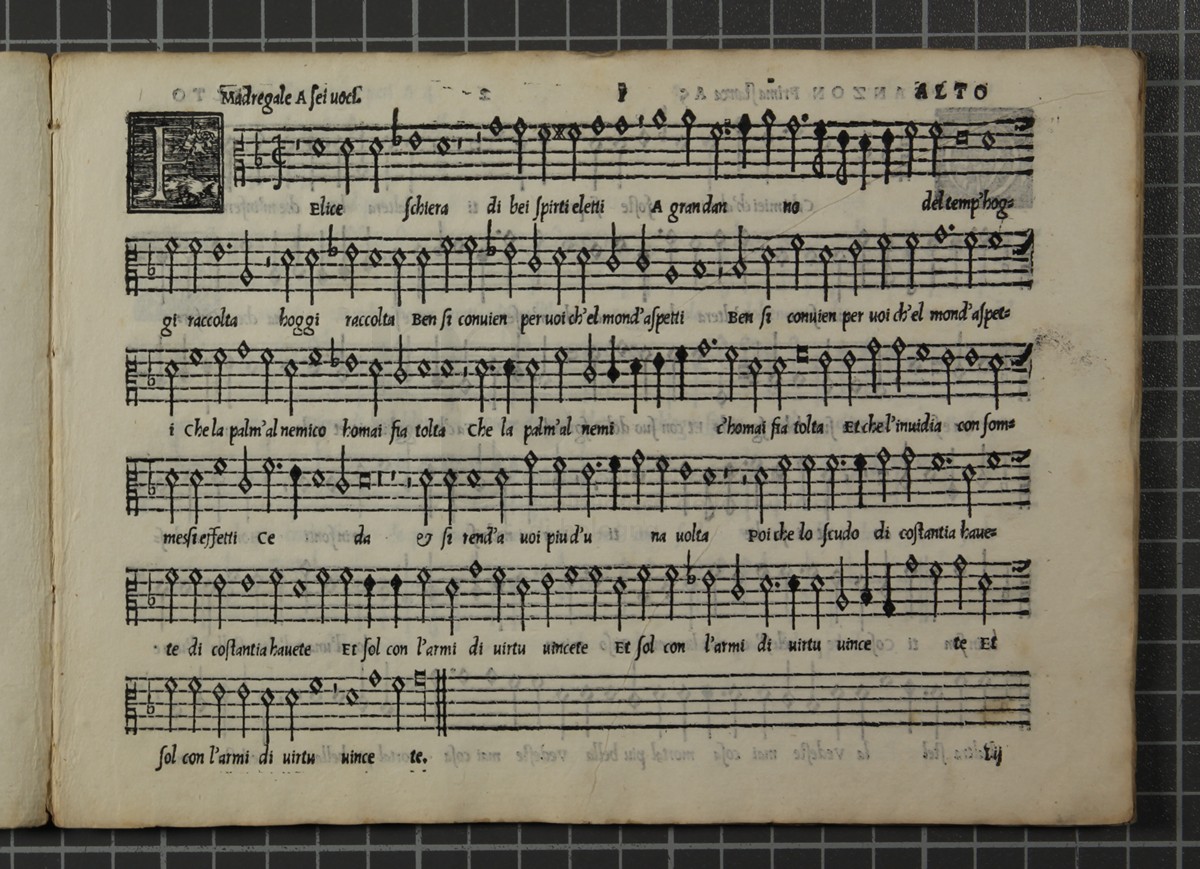 Madregale A sei voci. 1 ALTO
FElice schiera di bei spirti eletti A gran dan no del temp'hog=
gi raccolta hoggi raccolta Ben si conuien per uoi ch'el mond'aspetti Ben si conuien per uoi ch'el mond'aspet=
i Che la palm'al nemico homai fia tolta Che la palm'al nemi c'homai fia tolta Et che l'inuidia con som=
messi effetti Ce da & si rend'a uoi piu d'u na uolta Poi che lo scudo di costantia haue=
te di costantia hauete Et sol con l'armi di uirtu uincete Et sol con l'armi di uirtu uince te Et
sol con l'armi di uirtu uince te.
Lij